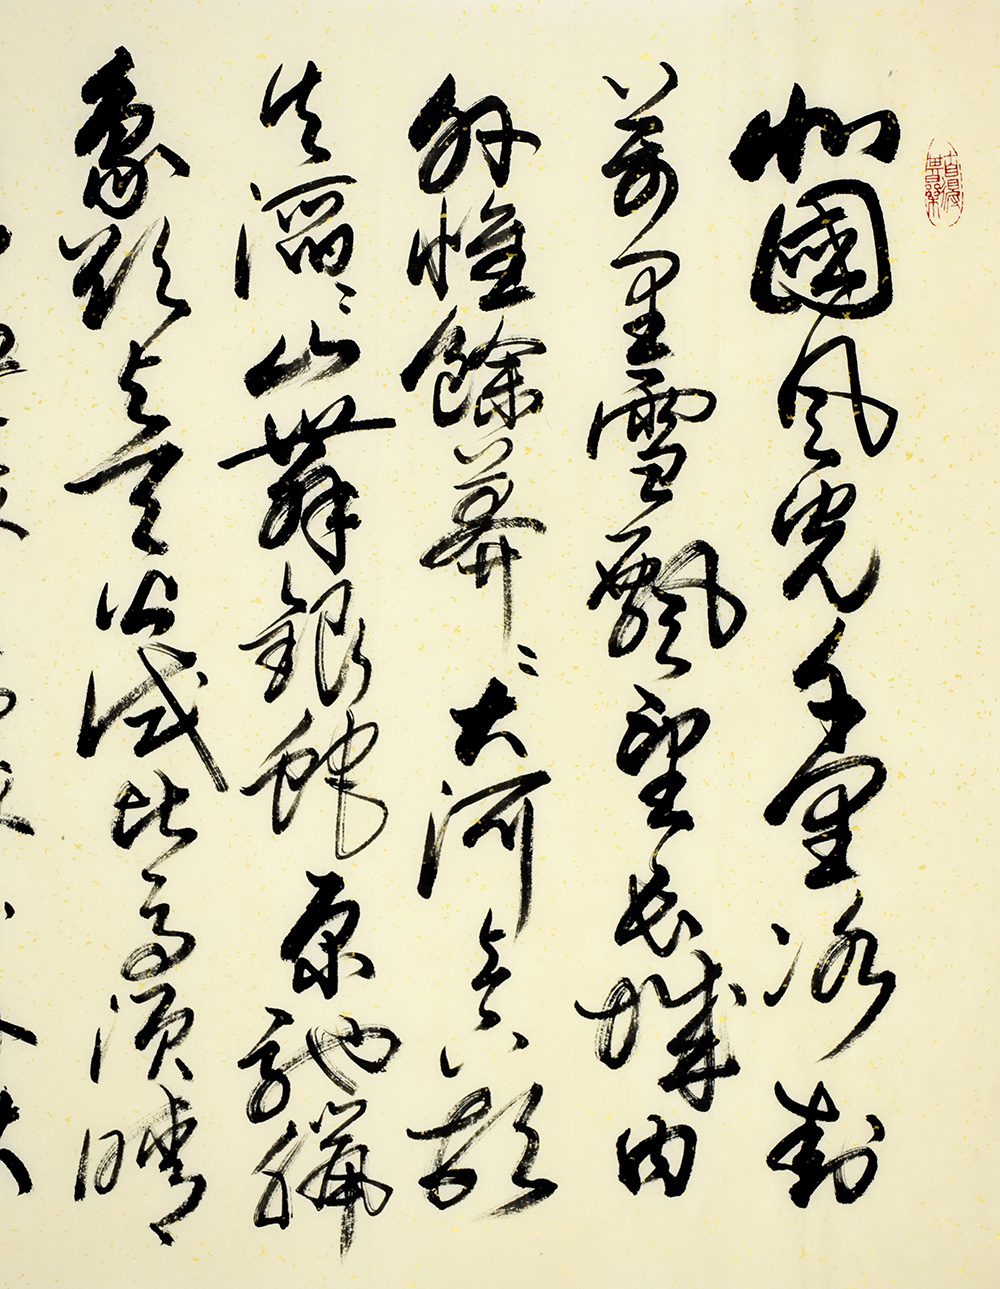 北國风光千里冰封
萬里雪飄望長城内
外惟餘莽々大河上下頓
失滔々山舞銀蛇原馳臘
象欲与天公試比高須晴